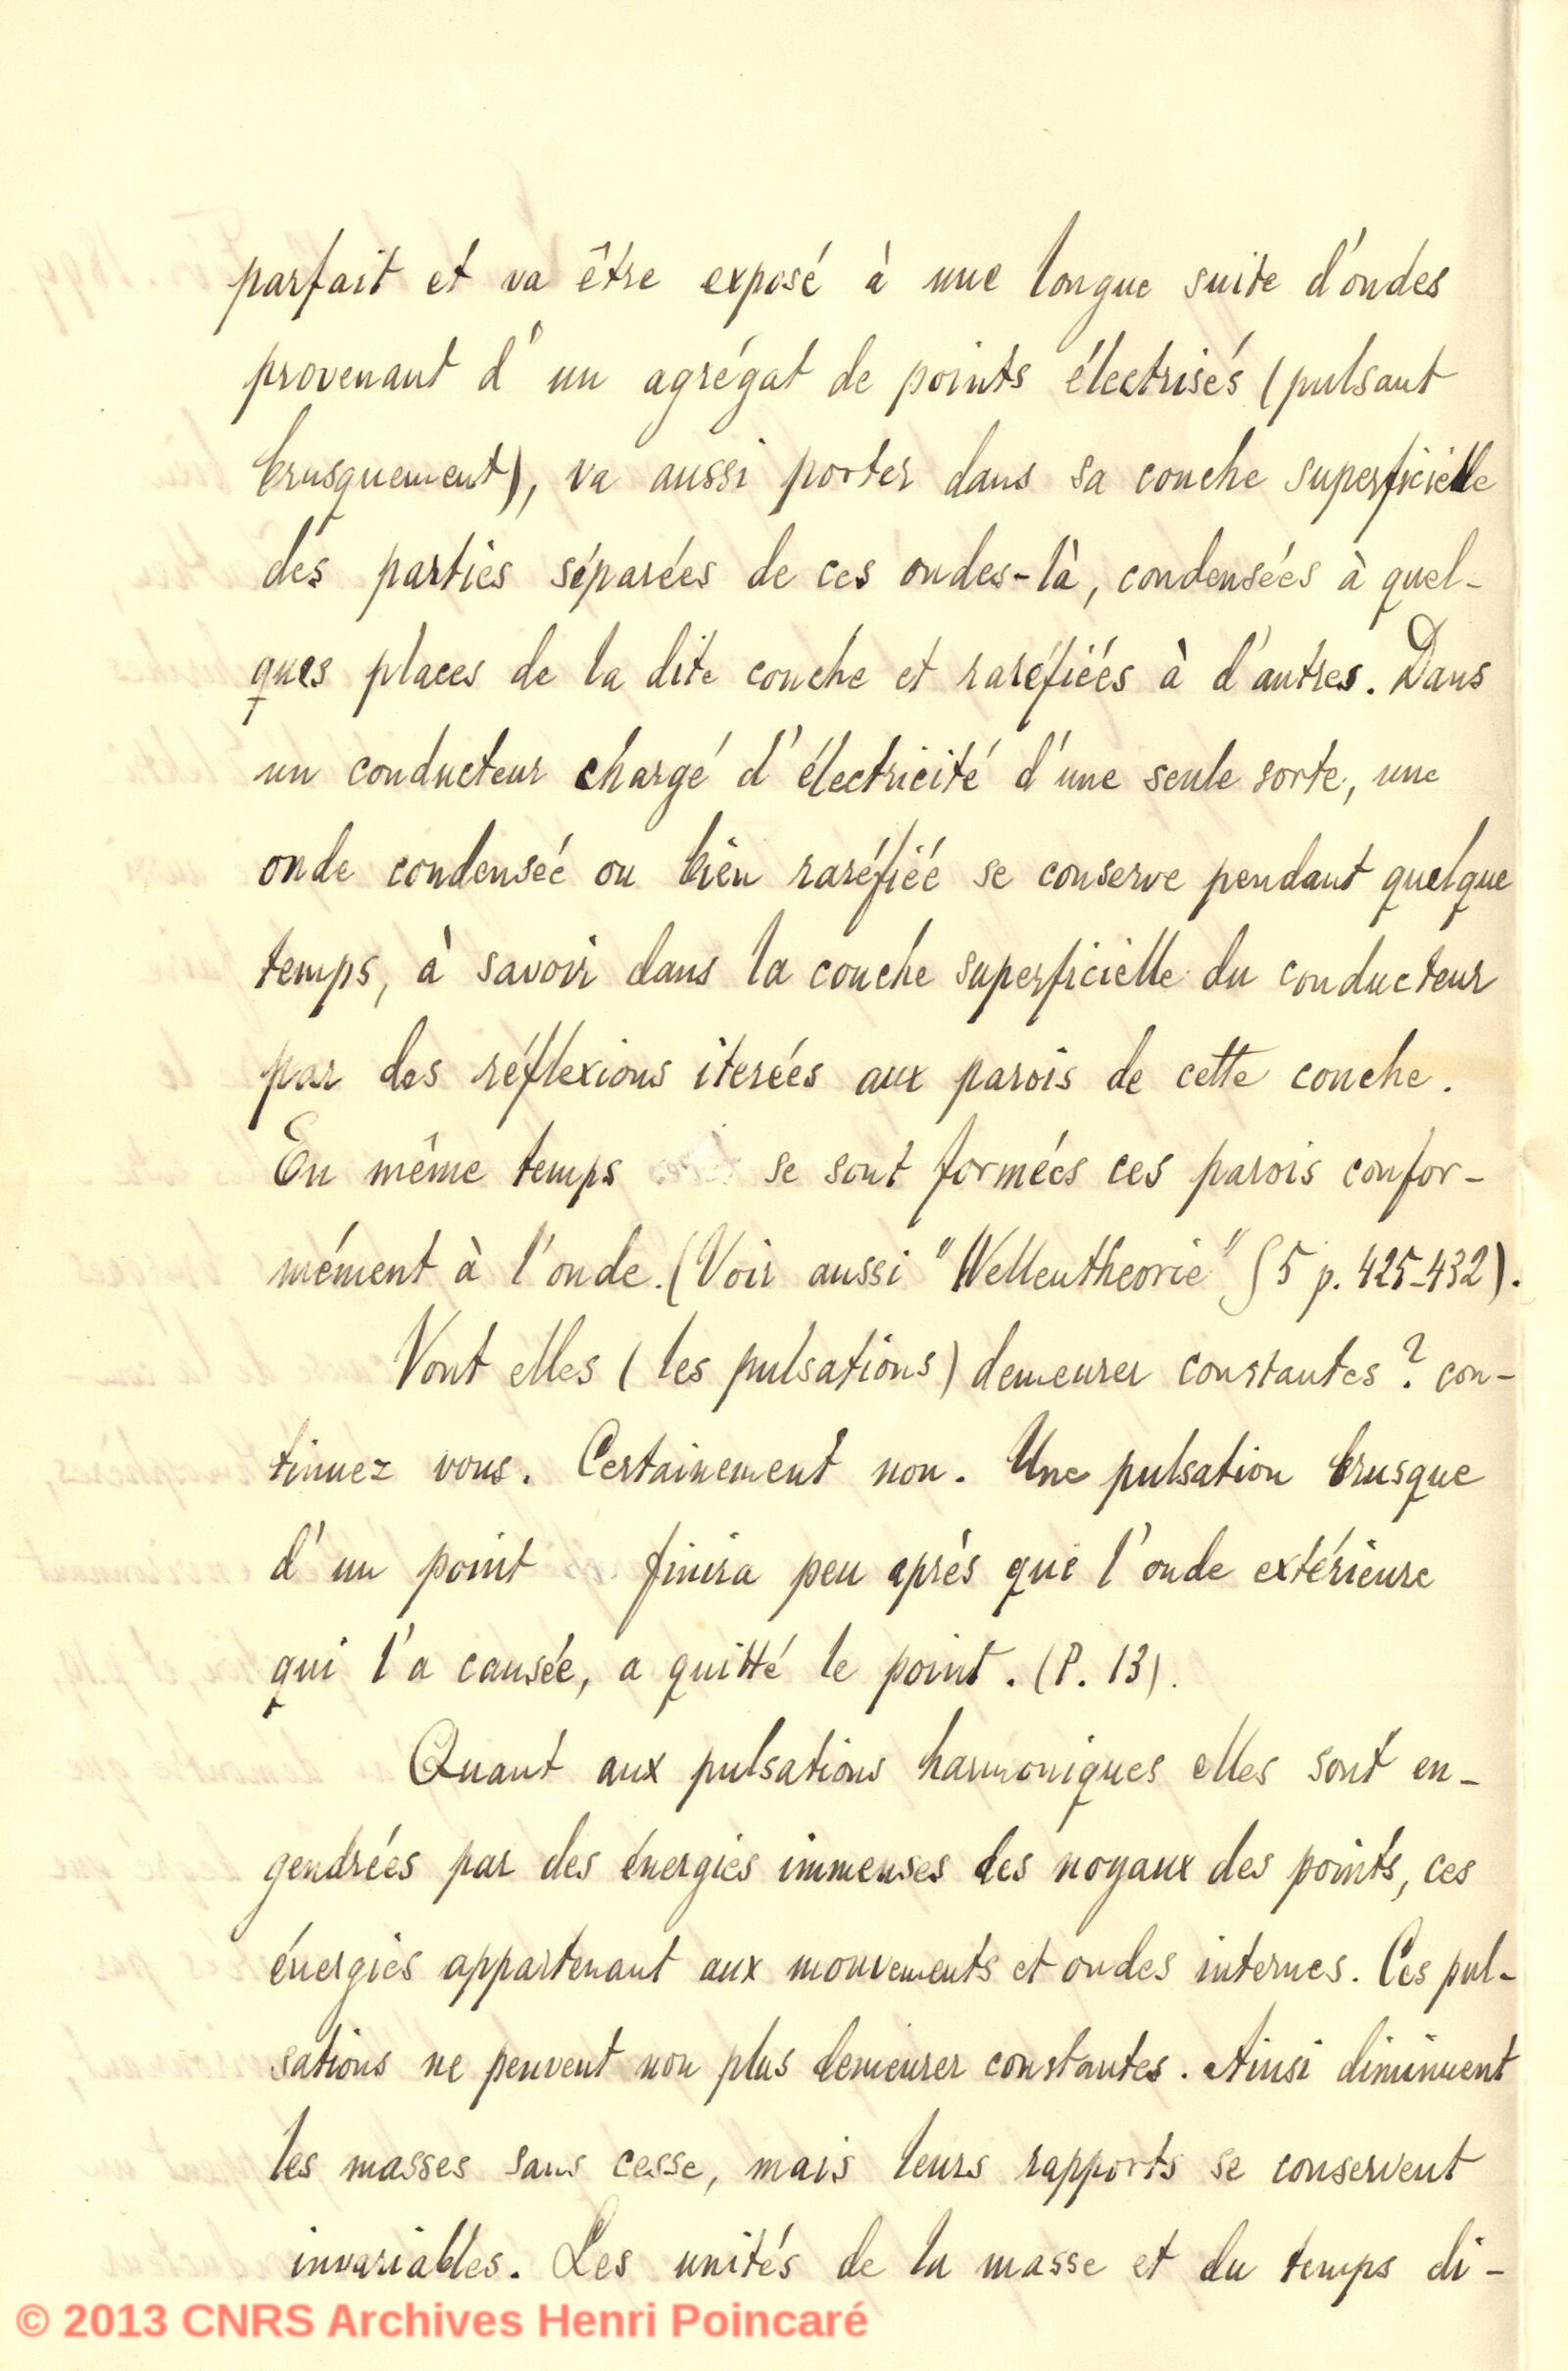 parfait et va être exposé à une longue suite d'ondes
provenant d'un agrégat de points électrisés (pulsant
brusquement), va aussi porter dans sa couche superficielle
des parties séparées de ces ondes-là, condensées à quel-
ques places de la dite couche et raréfiées à d'autres. Dans
un conducteur chargé d'électricité d'une seule sorte, une
onde condensée ou bien raréfiée se conserve pendant quelque
temps, à savoir dans la couche superficielle du conducteur
par des réflexions iterées aux parois de cette couche.
En même temps se sont formées ces parois confor-
mément à l'onde. (Voir aussi "Wellentheorie" § 5 p. 425-432).
Vont elles (les pulsations) demeurer constantes? con-
tinuez vous. Certainement non. Une pulsation brusque
d'un point finira peu après que l'onde extérieure
qui l'a causée, a quitté le point. (P. 13).
Quant aux pulsations harmoniques elles sont en-
gendrées par des énergies immenses des noyaux des points, ces
énergies appartenant aux mouvements et ondes internes. Ces pul-
sations ne peuvent non plus demeurer constantes. Ainsi diminuent
les masses sans cesse, mais leurs rapports se conservent
invariables. Les unités de la masse et du temps di-
© 2013 CNRS Archives Henri Poincaré